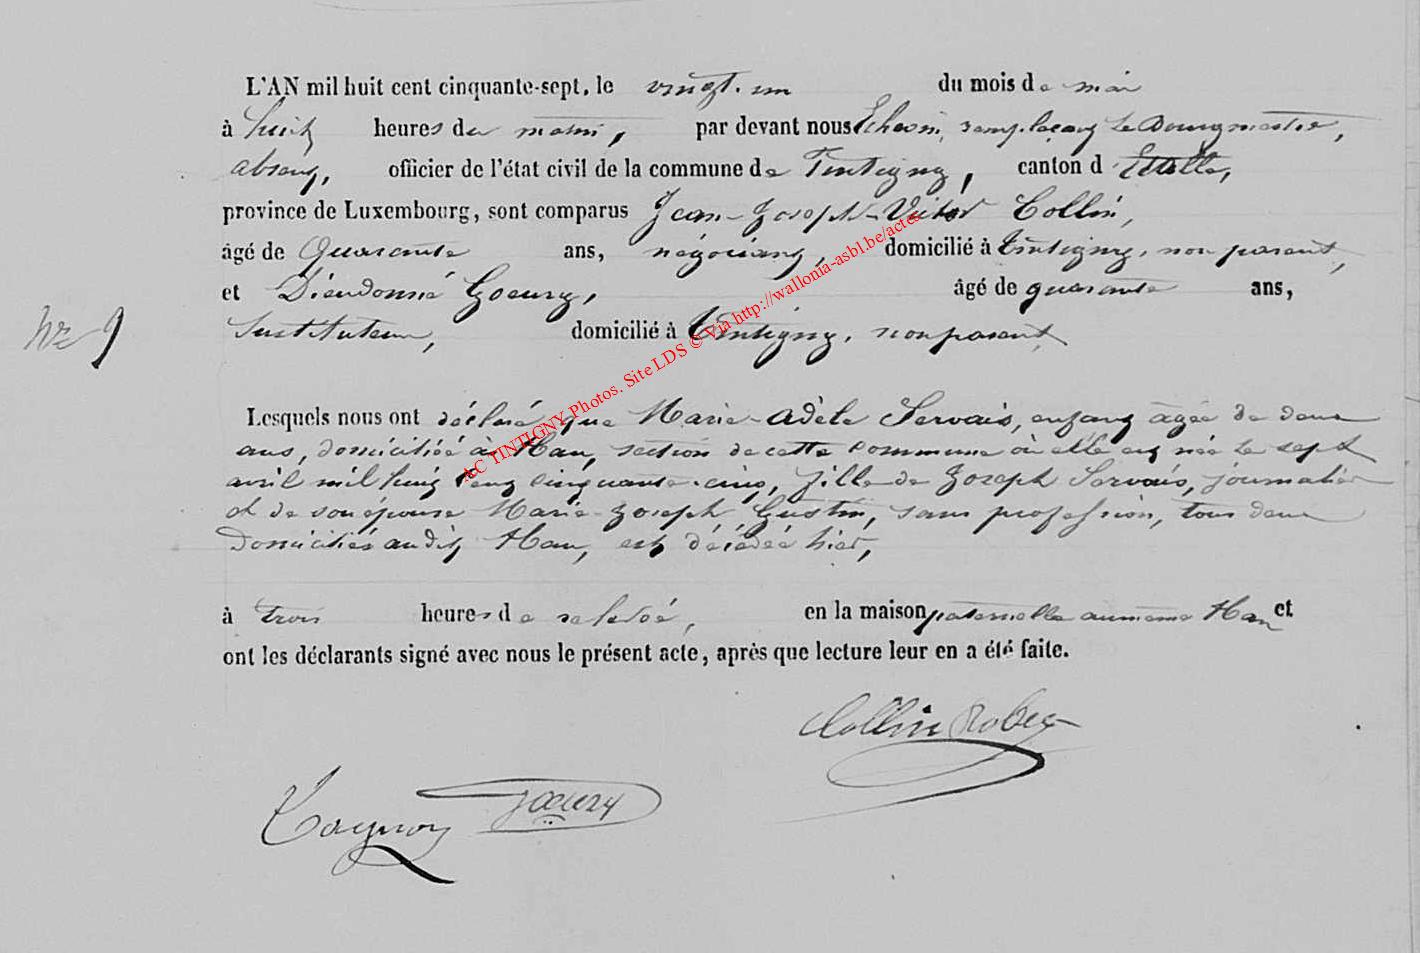 L'AN mil huit cent cinquante-sept, le vingt-un du mois de mai
à huit heures du matin, par devant nous Echevin, remplaçant le Bourgmestre,
absent, officier de l'état civil de la commune de Tintigny, canton d'Etalle,
province de Luxembourg, sont comparus Jean-Joseph-Victor Collin,
âgé de quarante ans, négociant, domicilié à Tintigny, non parent,
et Dieudonné Goeury, âgé de quarante ans,
N° 9
Instituteur, domicilié à Tintigny, non parent,
AC TINTIGNY Photos. Site LDS © Via http://wallonia-asbl.be/actes
Lesquels nous ont déclaré que Marie-Adèle Servais, enfant âgée de deux
ans, domiciliée à Han, section de cette commune où elle est née le sept
avril mil huit cent cinquante-cinq, fille de Joseph Servais, journalier
et de son épouse Marie-Joseph Gustin, sans profession, tous deux
domiciliés audit Han, est décédée hier,
à trois heures de relevée, en la maison paternelle au même Han et
ont les déclarants signé avec nous le présent acte, après que lecture leur en a été faite.
Collin
Goeury